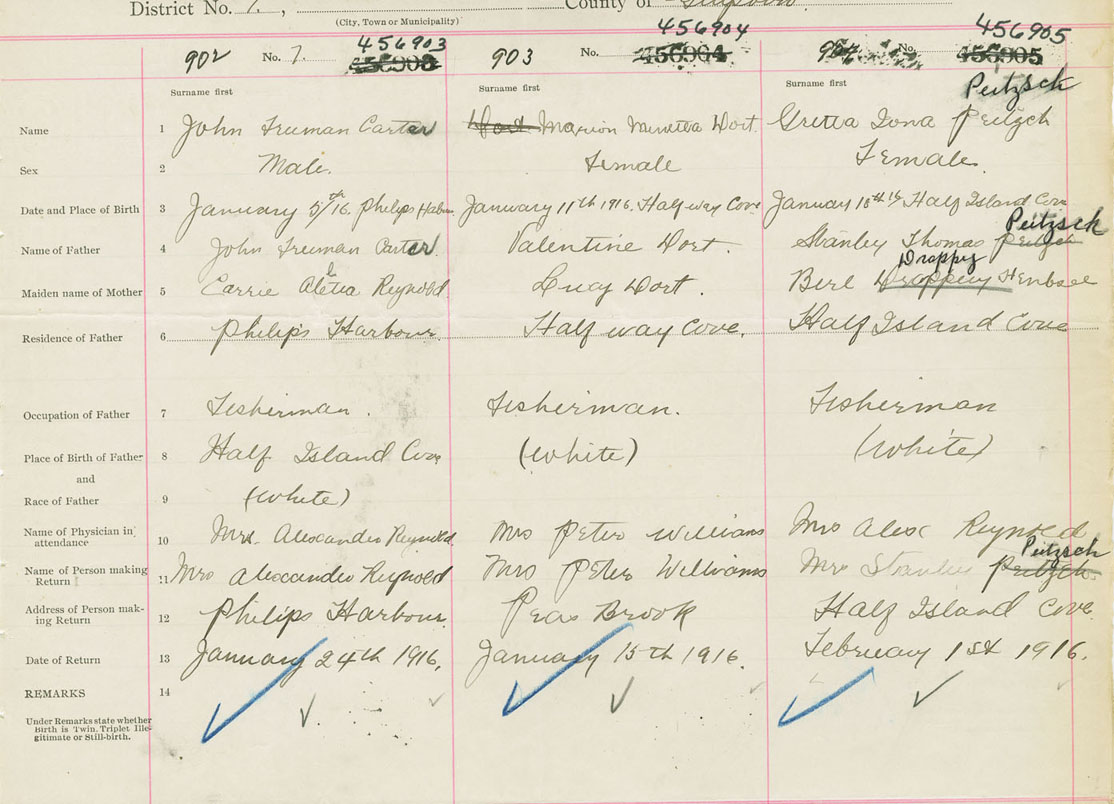 District No. 7. , County of
(City, Town or Municipality)
902 No. 7. 456903 903 No. 456904 904 No. 456905
456903 456904 456905
Surname first Surname first Surname first Peitzsch
Name 1 John Freeman Carter Dort Marion Minetta Dort. Gretta Iona Peitzch
Sex 2 Male. Female Female.
Date and Place of Birth 3 January 5th/16. Philips Habour January 11th 1916. Half way Cove January 18th 16 Half Island Cove
Peitzsch
Name of Father 4 John Freeman Carter. Valentine Dort. Stanley Thomas Peitzch
Drappy
Maiden name of Mother 5 Carrie Aletia Reynold. Lucy Dort. Berl Henbsee
Residence of Father 6 Philips Harbour. Half way Cove. Half Island Cove
Occupation of Father 7 Fisherman. Fisherman. Fisherman
Place of Birth of Father 8 Half Island Cove (White) (White)
and
Race of Father 9 (White)
Name of Physician in attendance 10 Mrs. Alexander Reynold. Mrs Peter Williams Mrs Alex Reynold
Peitzsch
Name of Person making Return 11 Mrs Alexander Reynold Mrs Peter Williams Mrs Stanley Peitzch.
Address of Person making Return 12 Philips Harbour. Peas Brook Half Island Cove.
Date of Return 13 January 24th 1916. January 15th 1916. February 1st 1916.
REMARKS 14
Under Remarks state whether
Birth is Twin, Triplet Ille-
gitimate or Still-birth.